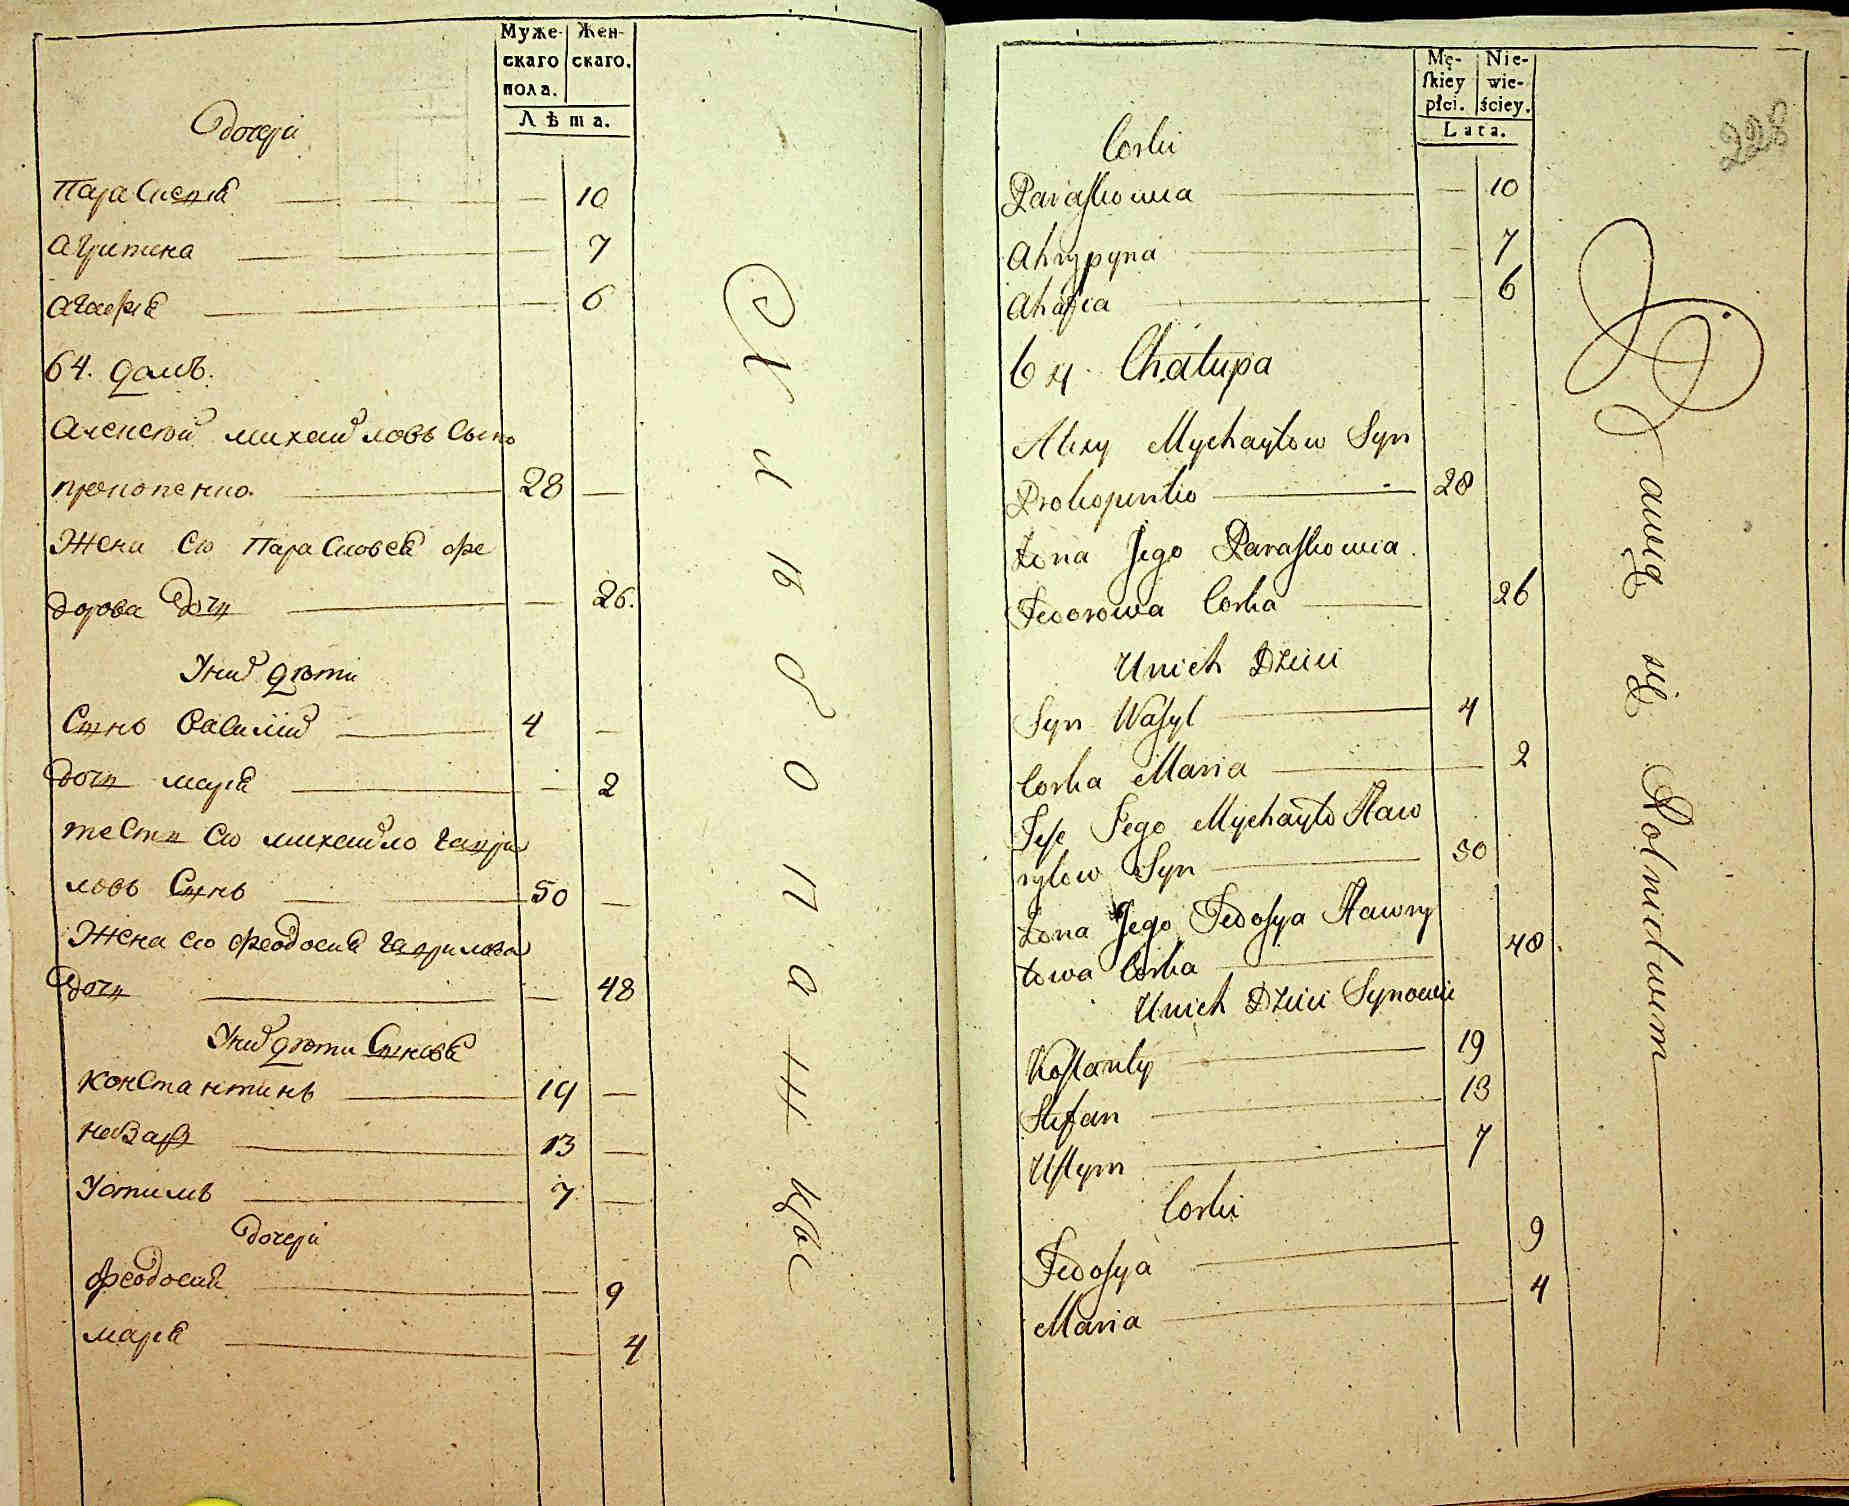 Муже-
скаго
пола.
Жен-
скаго.
Лѣта.
Дочери
Параскевія 10
Агрипина 7
Агафія 6
64. домъ.
Алексѣй михайловъ Сынъ
прокопенко. 28
Жена Его Парасковея фе
дорова Дочь 26.
У них дѣти
Сынъ Василій 4
Дочь марія 2
тесть Его михайло гаври
ловъ Сынъ 50
Жена его феодосия гаврилова
Дочь 48
У них дѣти Сыновя
константинъ 19
13
Устимъ 7
дочери
феодосия 9
марія 4
Mę-
skiey
płci.
Nie-
wie-
ściey.
Lata.
228
Corki
Paraskowia 10
Ahrypyna 7
Ahafia 6
64 Chałupa
Alexy Mychayłow Syn
Prokopenko 28
Żona Jego Paraskowia
Fedorowa Corka 26
Unich Dzieci
Syn Wasyl 4
Corka Maria 2
Tesc Jego Mychayło Haw
ryłow Syn 50
Żona Jego Fedosya Hawry
łowa Corka 48
Unich Dzieci Synowie
Kostanty 19
Stefan 13
Ustym 7
Corki
Fedosya 9
Maria 4
Bawią się Rolnictwem